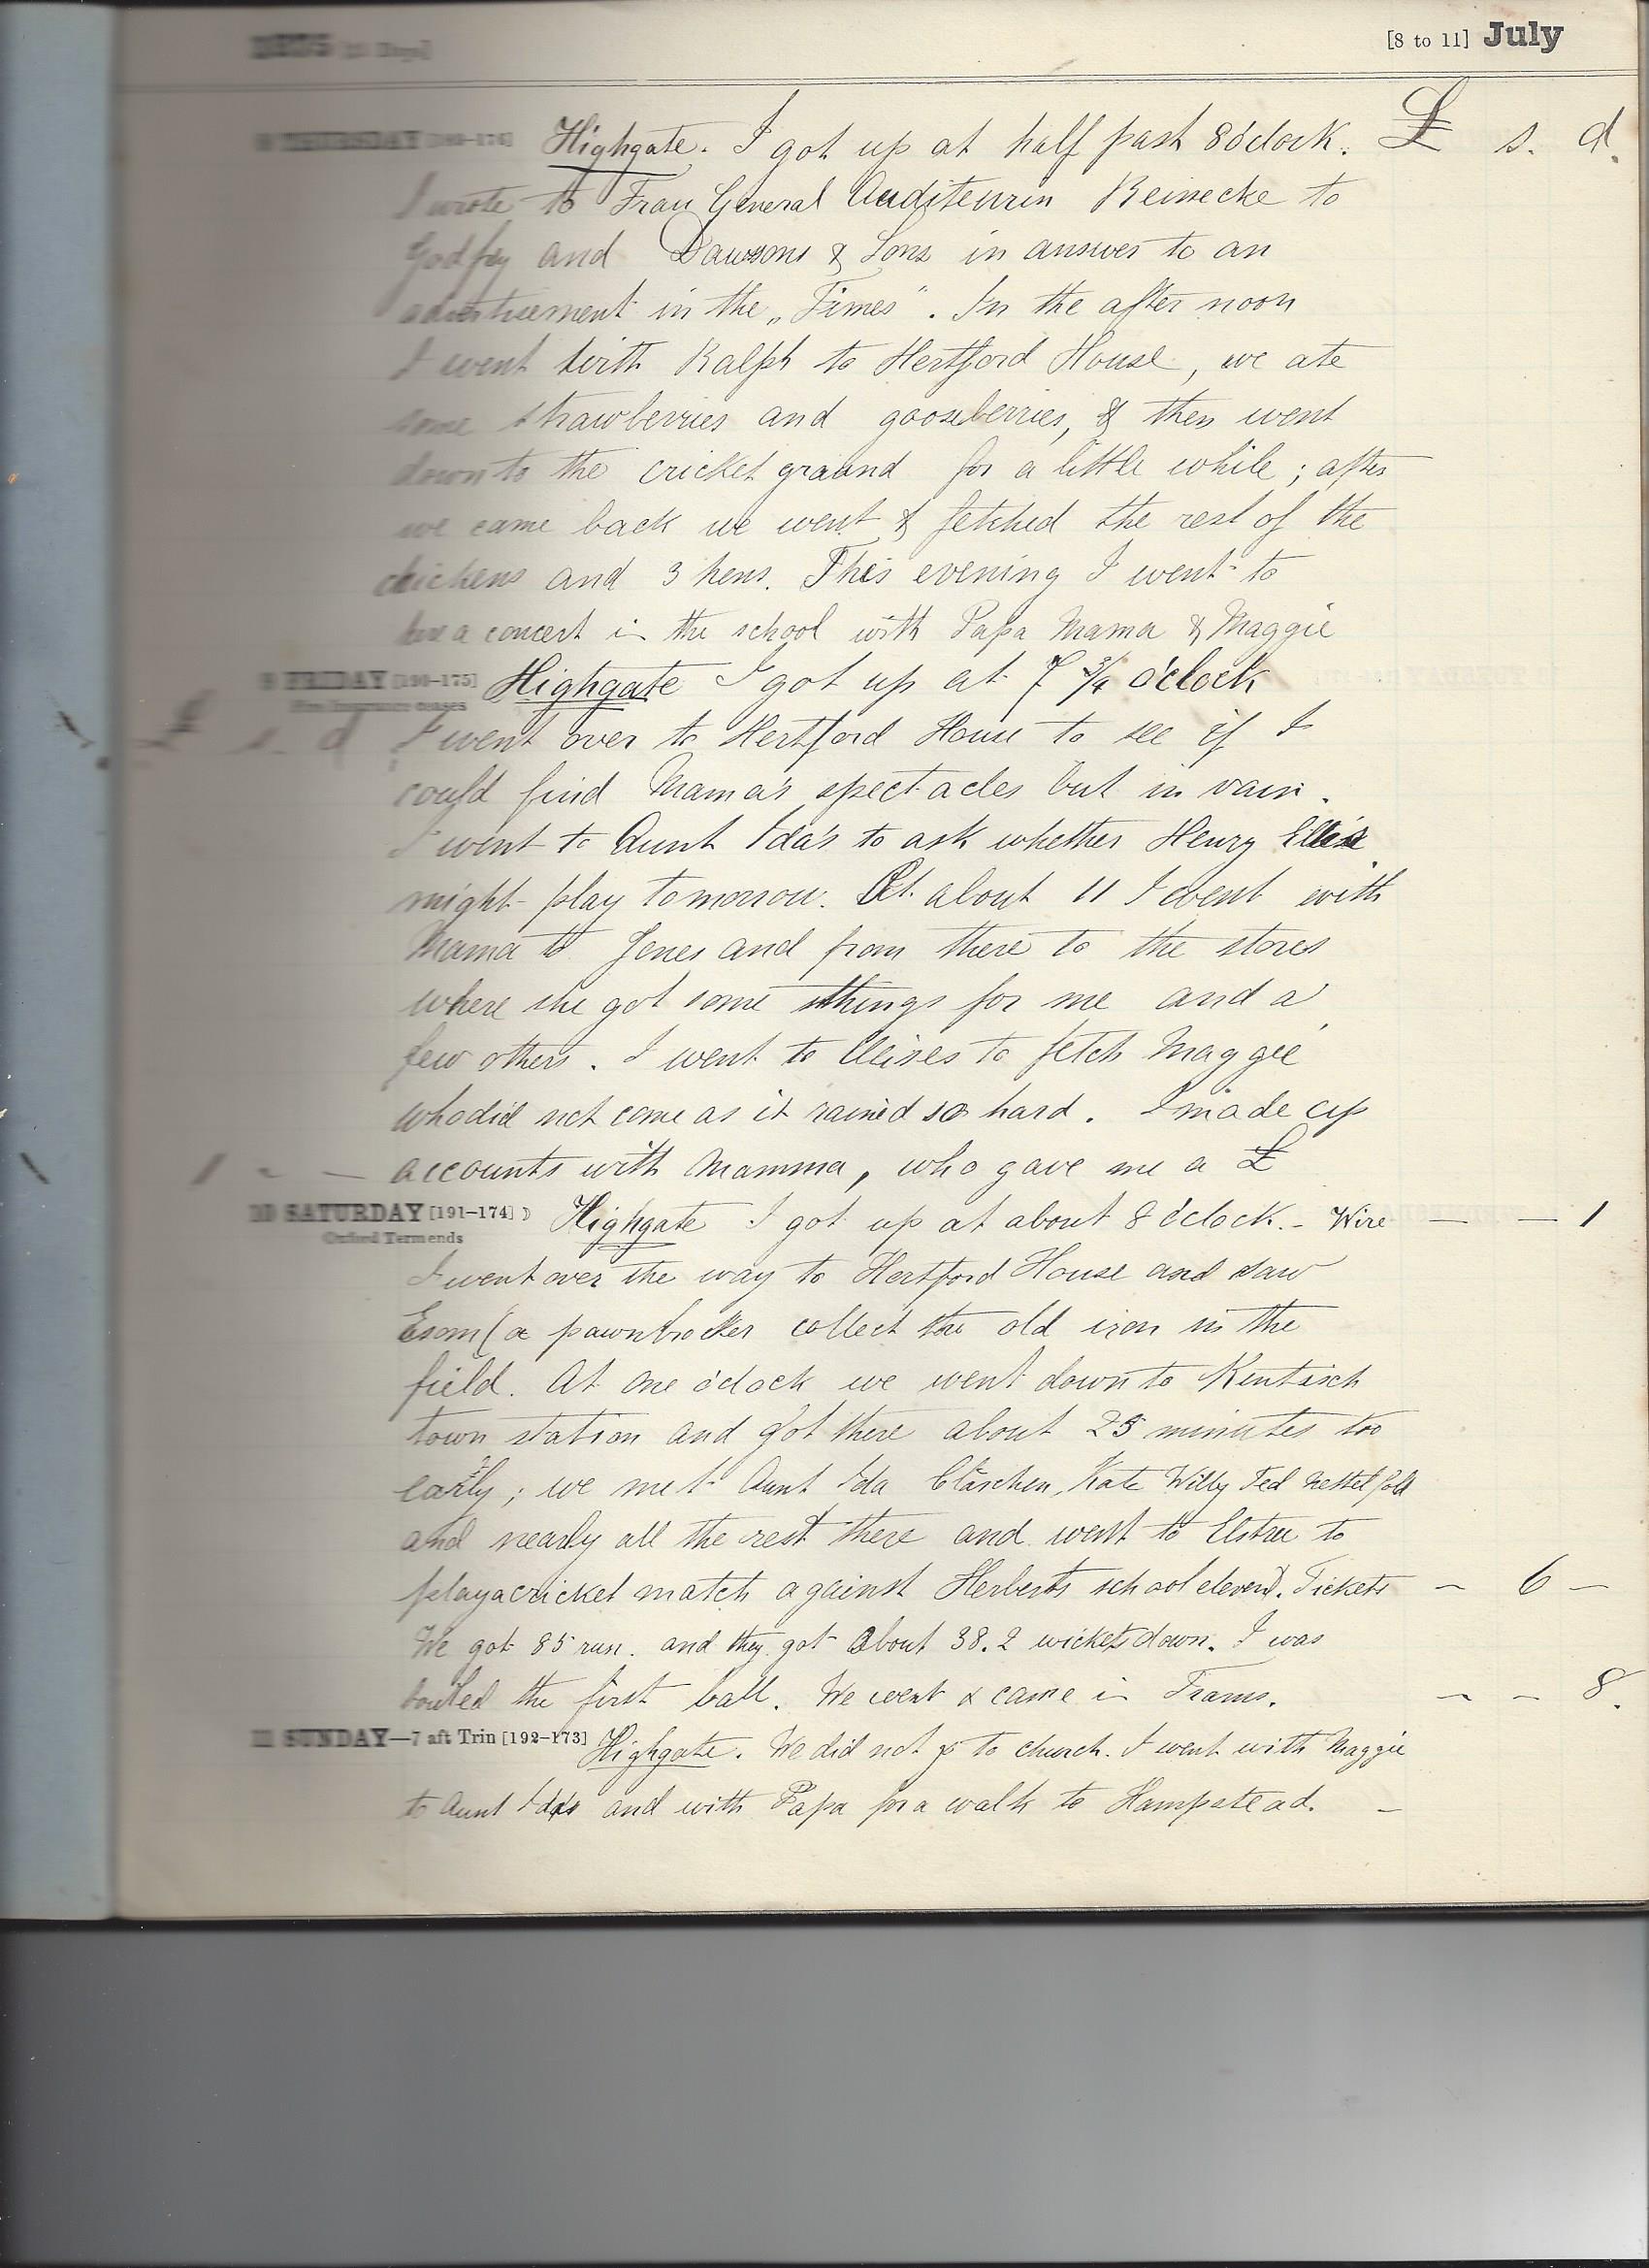 [8 to 11] July
8 THURSDAY [189-176] Highgate. I got up at half past 8 o'clock. £ s. d.
I wrote to Frau General Auditeurin Reinecke to
Godfrey and Dawsons & Sons in answer to an
advertisement in the „Times“. In the after noon
I went with Ralph to Hertford House, we ate
some strawberries and gooseberries, & then went
down to the cricket ground for a little while; after
we came back we went & fetched the rest of the
chickens and 3 hens. This evening I went to
a concert in the school with Papa Mama & Maggie
9 FRIDAY [190-175] Highgate I got up at 7 3/4 o'clock
Fire Insurance ceases
s. d I went over to Hertford House to see if I
could find Mama's spectacles but in vain.
I went to Aunt Ida's to ask whether Henry
might play tomorrow. At about 11 I went with
Mama to Jones and from there to the stores
where she got some things for me and a
few others. I went to to fetch Maggie
who did not come as it rained so hard. I made up
1 - - accounts with Mamma, who gave me a £
10 SATURDAY [191-174] ☽ Highgate I got up at about 8 o'clock. - Wire — — 1
Oxford Term ends
I went over the way to Hertford House and saw
Esom (a pawnbrocker collect the old iron in the
field. At one o'clock we went down to Kentisch
town station and got there about 25 minutes too
early; we met Aunt Ida Clärchen, Kate Willy Ted Nettelfold
and nearly all the rest there and went to Elstree to
play a cricket match against Herberts school eleven. Tickets — 6 —
We got 85 run. and they got about 38. 2 wickets down. I was
bowled the first ball. We went & came in Trams. — — 8.
11 SUNDAY—7 aft Trin [192-173] Highgate. We did not go to church. I went with Maggie
to Aunt Ida's and with Papa for a walk to Hampstead. —